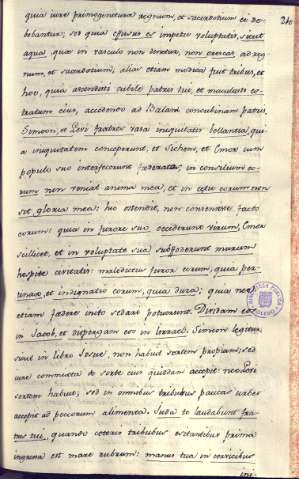 quia iure primogenitura regnum, et sacerdotium ei de-
bebantur; sed quia effusus es impetu voluptatis, sicut
aqua quæ in vasculo non tenetur, non crescas ad reg-
num, et sacerdotium; alias etiam modica fuit tribus, et
hoc, quia ascendisti cubile patris tui, et maculasti
stratum eius, accedendo ad Balam concubinam patris.
Simeon, et Levi fratres vasa iniquitatis bellantia, qui-
a iniquitatem conceperunt, et Sichem, et Emor cum
populo suo interfecerunt in consilium eo-
rum non veniat anima mea, et in cœtu eorum non
sit gloria mea: hic ostendit, non consensisse facto
eorum: quia in furore suo occiderunt virum, Emor
scilicet, et in voluptate sua suffoderunt murum
civitatis: maledictus furor eorum, quia per-
tinax, et indignatio eorum, quia dura; quia nec
etiam fœdere inito sedari potuerunt. Dividam eos
in Jacob, et dispergam eos in Israel. Simeon legitur,
sicut in libro Josue, non habuit sortem propriam; sed
de sorte eius quidam accepit: neo Levi
sortem habuit; sed in omnibus tribubus paucas urbes
accepit ad pecorum alimenta. Juda te laudabunt fra-
tres tui, quando ceteris tribubus prima
ingressa est mare rubrum: manus tua in cervicibus
ini-